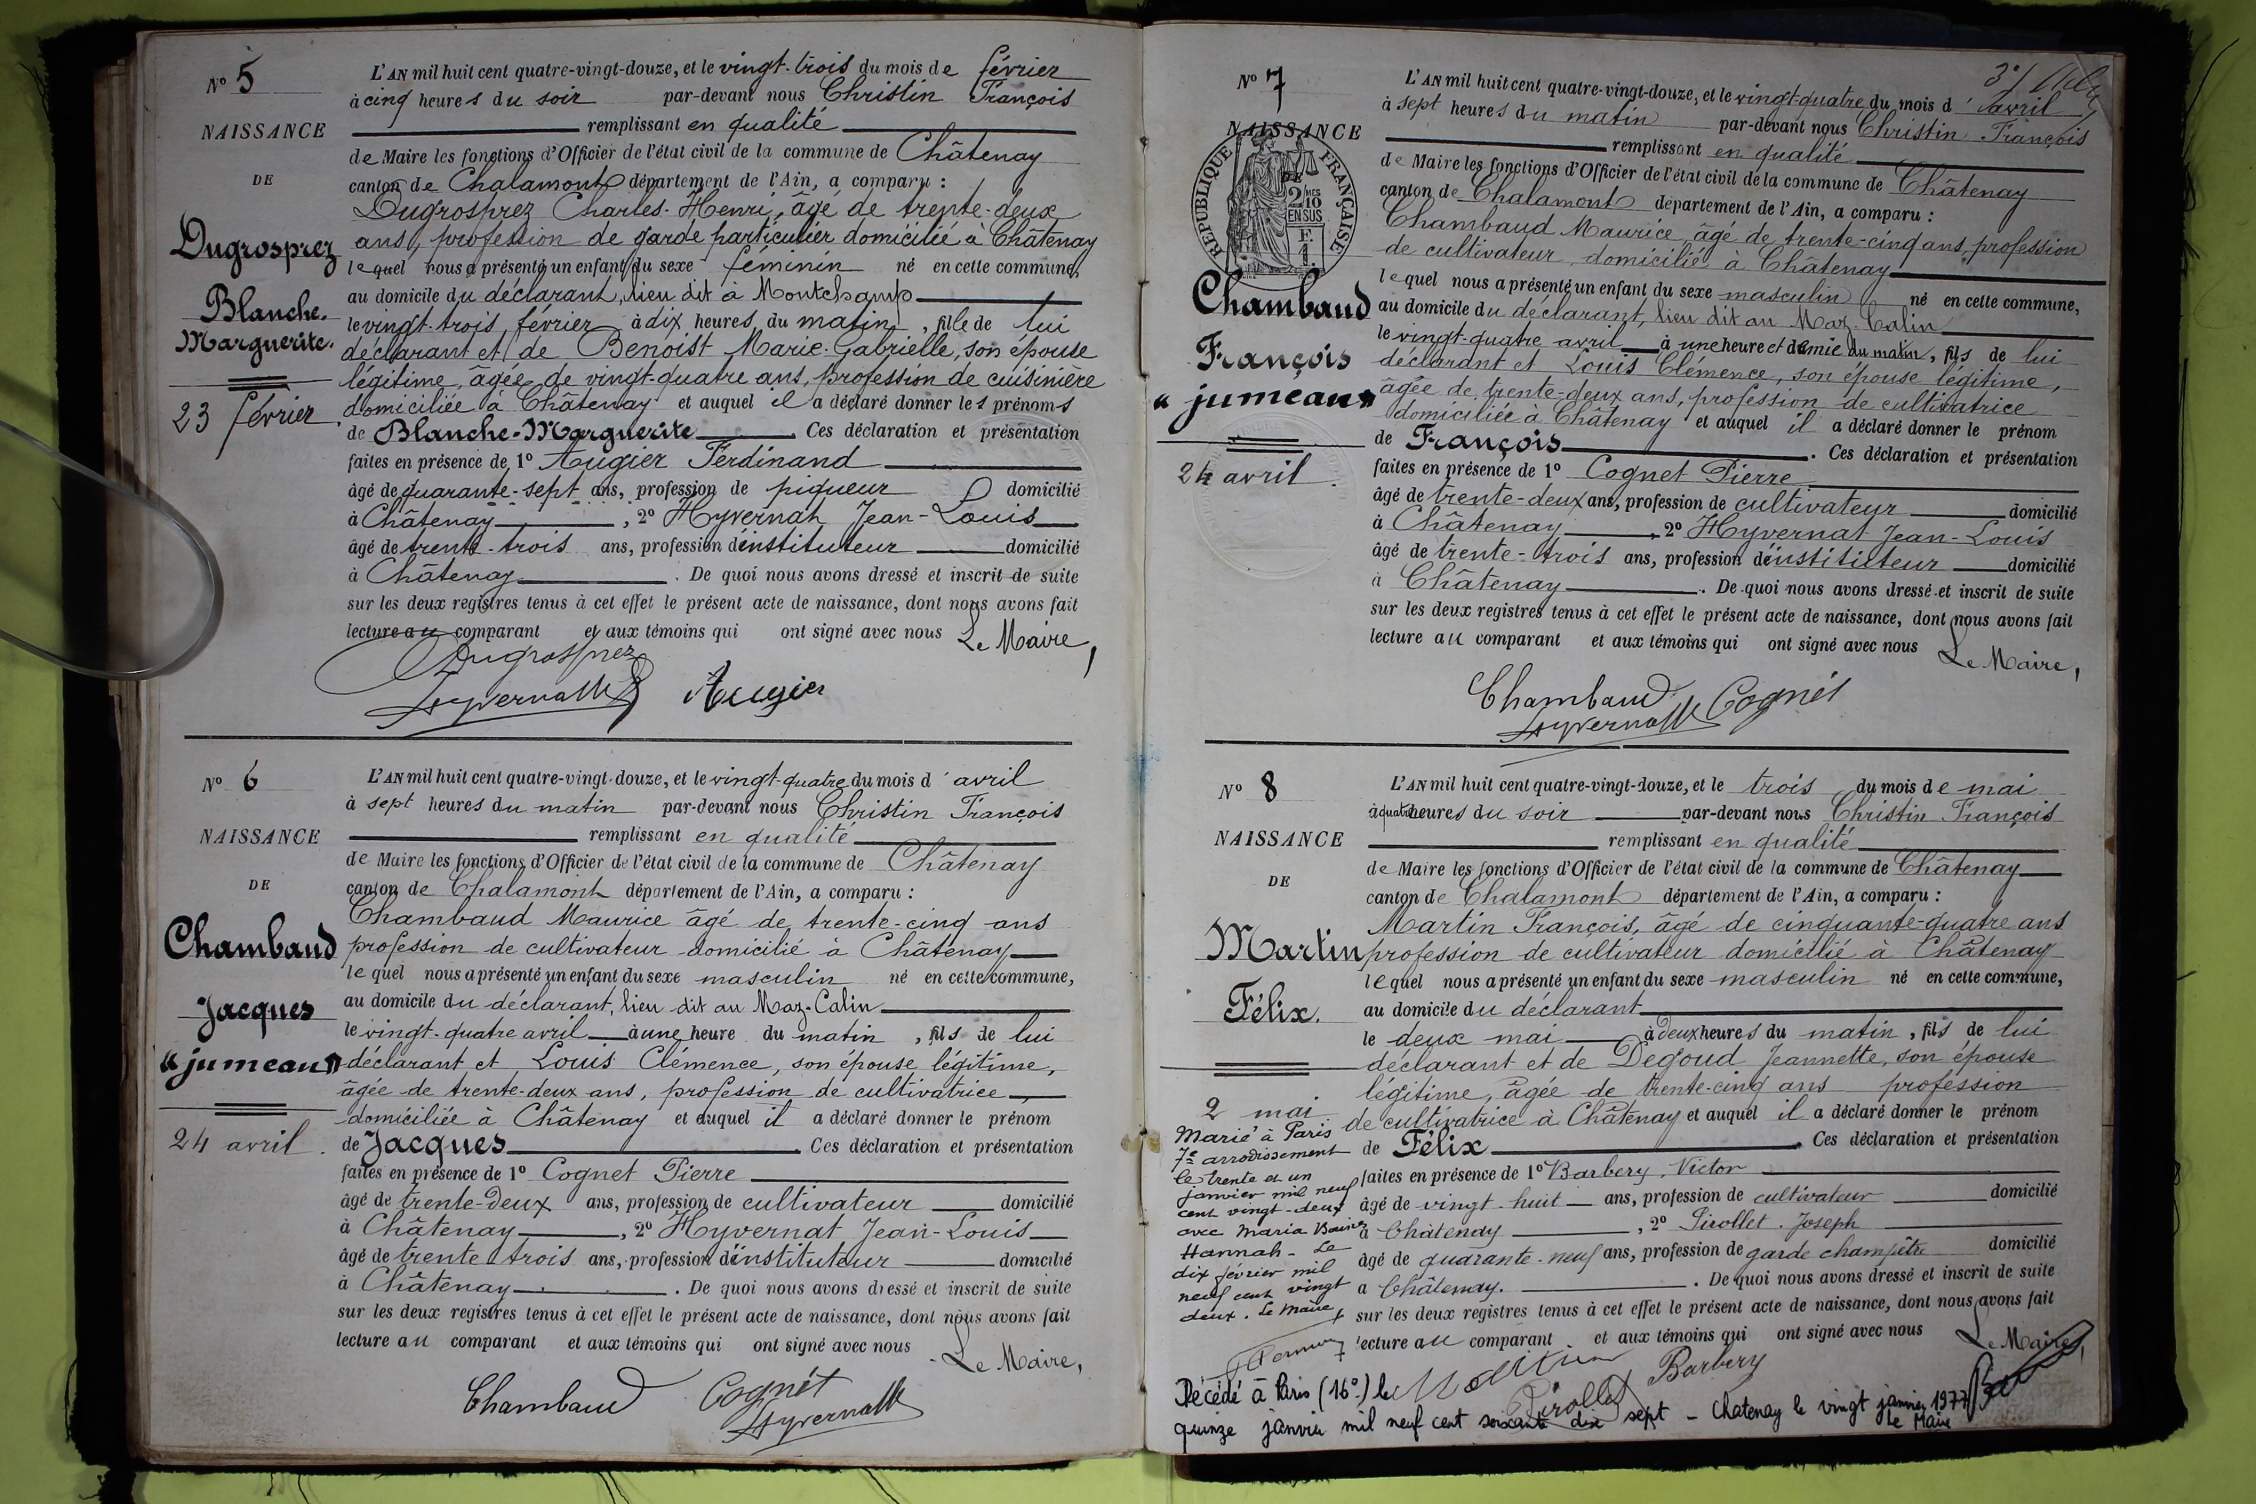 N° 5
NAISSANCE
DE
Dugrosprez
Blanche-
Marguerite.
23 février.
L'AN mil huit cent quatre-vingt-douze, et le vingt-trois du mois de février
à cinq heures du soir par-devant nous Christin François
remplissant en qualité
de Maire les fonctions d'Officier de l'état civil de la commune de Châtenay
canton de Chalamont département de l'Ain, a comparu :
Dugrosprez Charles-Henri, âgé de trente-deux
ans, profession de garde particulier domicilié à Châtenay
lequel nous a présenté un enfant du sexe féminin né en cette commune,
au domicile du déclarant, lieu dit à Montchamp
le vingt-trois février à dix heures du matin, fille de lui
déclarant et de Benoist Marie-Gabrielle, son épouse
légitime, âgée de vingt-quatre ans, profession de cuisinière
domiciliée à Châtenay et auquel il a déclaré donner les prénoms
de Blanche-Marguerite. Ces déclaration et présentation
faites en présence de 1° Augier Ferdinand
âgé de quarante-sept ans, profession de piqueur domicilié
à Châtenay, 2° Hyvernat Jean-Louis
âgé de trente-trois ans, profession d'instituteur domicilié
à Châtenay. De quoi nous avons dressé et inscrit de suite
sur les deux registres tenus à cet effet le présent acte de naissance, dont nous avons fait
lecture au comparant et aux témoins qui ont signé avec nous Le Maire,
Dugrosprez
Hyvernat Augier
N° 6
NAISSANCE
DE
Chambaud
Jacques
"jumeau"
24 avril.
L'AN mil huit cent quatre-vingt-douze, et le vingt-quatre du mois d'avril
à sept heures du matin par-devant nous Christin François
remplissant en qualité
de Maire les fonctions d'Officier de l'état civil de la commune de Châtenay
canton de Chalamont département de l'Ain, a comparu :
Chambaud Maurice âgé de trente-cinq ans
profession de cultivateur domicilié à Châtenay
lequel nous a présenté un enfant du sexe masculin né en cette commune,
au domicile du déclarant, lieu dit au Maz-Calin
le vingt-quatre avril à une heure du matin, fils de lui
déclarant et Louis Clémence, son épouse légitime,
âgée de trente-deux ans, profession de cultivatrice
domiciliée à Châtenay et auquel il a déclaré donner le prénom
de Jacques. Ces déclaration et présentation
faites en présence de 1° Cognet Pierre
âgé de trente-deux ans, profession de cultivateur domicilié
à Châtenay, 2° Hyvernat Jean-Louis
âgé de trente trois ans, profession d'instituteur domicilié
à Châtenay. De quoi nous avons dressé et inscrit de suite
sur les deux registres tenus à cet effet le présent acte de naissance, dont nous avons fait
lecture au comparant et aux témoins qui ont signé avec nous
Le Maire,
Chambaud Cognet
Hyvernat
N° 7
NAISSANCE
DE
RÉPUBLIQUE FRANÇAISE
2/10 MES
EN SUS
Chambaud
François
"jumeau"
24 avril.
L'AN mil huit cent quatre-vingt-douze, et le vingt-quatre du mois d'avril
à sept heures du matin par-devant nous Christin François
remplissant en qualité
de Maire les fonctions d'Officier de l'état civil de la commune de Châtenay
canton de Chalamont département de l'Ain, a comparu :
Chambaud Maurice âgé de trente-cinq ans, profession
de cultivateur, domicilié à Châtenay
lequel nous a présenté un enfant du sexe masculin né en cette commune,
au domicile du déclarant, lieu dit au Maz-Calin
le vingt-quatre avril à une heure et demie du matin, fils de lui
déclarant et Louis Clémence, son épouse légitime,
âgée de trente-deux ans, profession de cultivatrice
domiciliée à Châtenay et auquel il a déclaré donner le prénom
de François. Ces déclaration et présentation
faites en présence de 1° Cognet Pierre
âgé de trente-deux ans, profession de cultivateur domicilié
à Châtenay, 2° Hyvernat Jean-Louis
âgé de trente-trois ans, profession d'instituteur domicilié
à Châtenay. De quoi nous avons dressé et inscrit de suite
sur les deux registres tenus à cet effet le présent acte de naissance, dont nous avons fait
lecture au comparant et aux témoins qui ont signé avec nous
Le Maire,
Chambaud Cognet
Hyvernat
N° 8
NAISSANCE
DE
Martin
Félix.
2 mai.
Marié à Paris
7e arrodissement
le trente et un
janvier mil neuf
cent vingt-deux
avec Maria
Hannah - Le
dix février mil
neuf cent vingt
deux. Le Maire,
L'AN mil huit cent quatre-vingt-douze, et le trois du mois de mai
à quatre heures du soir par-devant nous Christin François
remplissant en qualité
de Maire les fonctions d'Officier de l'état civil de la commune de Châtenay
canton de Chalamont département de l'Ain, a comparu :
Martin François, âgé de cinquante-quatre ans
profession de cultivateur domicilié à Châtenay
lequel nous a présenté un enfant du sexe masculin né en cette commune,
au domicile du déclarant
le deux mai à deux heures du matin, fils de lui
déclarant et de Degoud Jeannette, son épouse
légitime, âgée de trente-cinq ans profession
de cultivatrice à Châtenay et auquel il a déclaré donner le prénom
de Félix. Ces déclaration et présentation
faites en présence de 1° Barbery, Victor
âgé de vingt-huit ans, profession de cultivateur domicilié
à Châtenay, 2° Pirollet. Joseph
âgé de quarante-neuf ans, profession de garde champêtre domicilié
a Châtenay. De quoi nous avons dressé et inscrit de suite
sur les deux registres tenus à cet effet le présent acte de naissance, dont nous avons fait
lecture au comparant et aux témoins qui ont signé avec nous
Le Maire,
Martin Barbery
Pirollet
Décédé à Paris (16e) le
quinze janvier mil neuf cent soixante dix sept - Chatenay le vingt janvier 1977
Le Maire